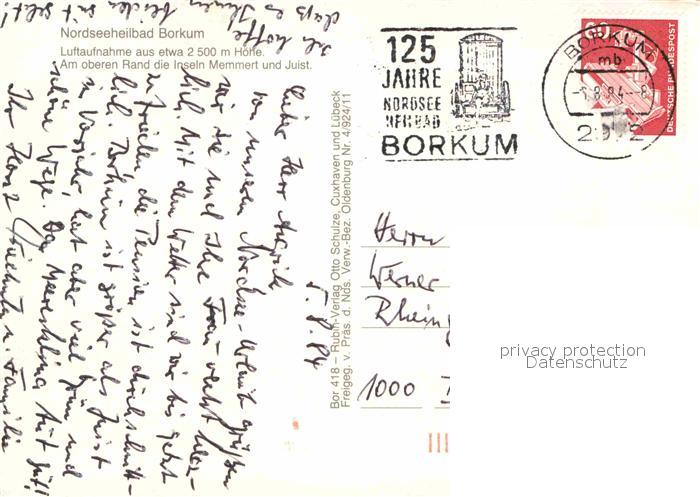 Nordseeheilbad Borkum
Luftaufnahme aus etwa 2 500 m Höhe.
Am oberen Rand die Inseln Memmert und Juist.
125
JAHRE
NORDSEE
HEILBAD
BORKUM
BORKUM
mb
-6.8.84-8
2972
80
DEUTSCHE BUNDESPOST
Bor 418 – Rubin-Verlag Otto Schulze, Cuxhaven und Lübeck
Freigeg. v. Präs. d. Nds. Verw.-Bez. Oldenburg Nr. 4/924/11
5.8.84
Lieber Herr
von unserem Nordsee-Urlaub grüßen
wir Sie und Ihre Frau recht herz-
lich. Mit dem Wetter sind wir bis jetzt
zufrieden, die Pension ist durchschnitt-
lich. Borkum ist größer als Juist
im Vorjahr, hat aber viel Grün und
schöne Wege. Das Meeresklima tut gut!
Ich hoffe,
dass es Ihnen beiden gut geht!
Ihr Horst u. Familie
Herrn
Werner
Rhein
1000
privacy protection
Datenschutz